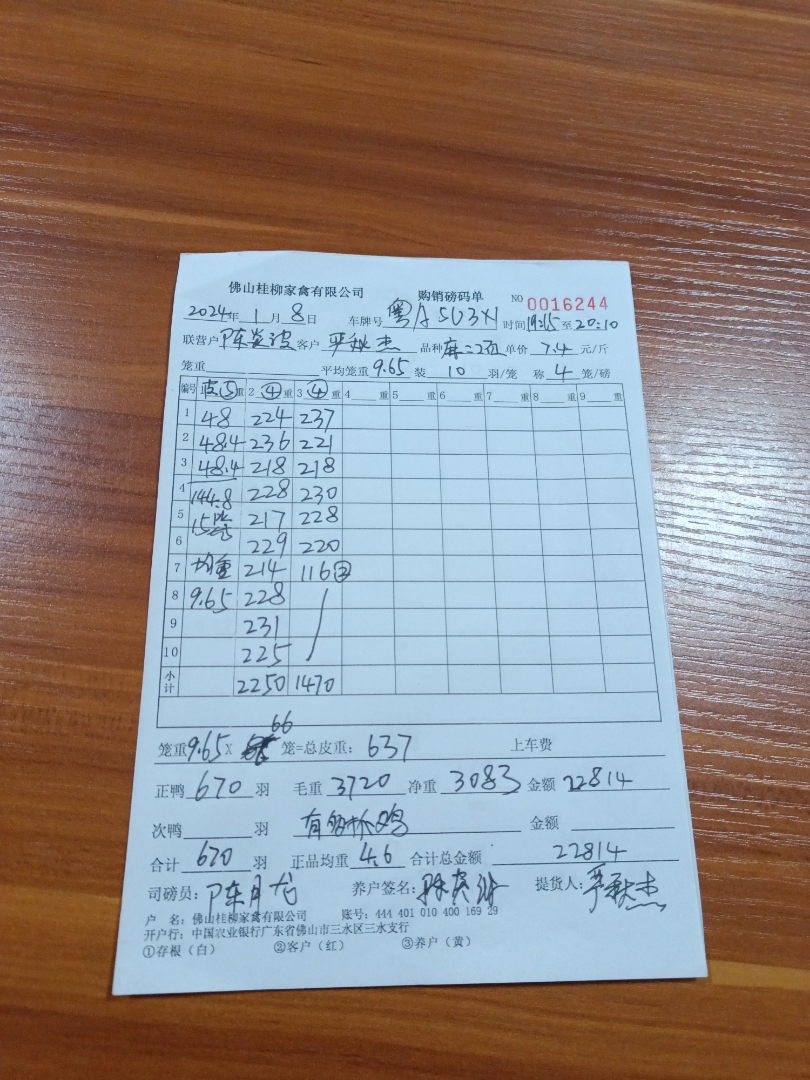 佛山桂柳家禽有限公司 购销磅码单 NO 0016244
2024年 1 月 8 日 车牌号 粤A 5U3X1 时间 19:15 至 20:10
联营户 陈炎波 客户 严秋杰 品种 麻二 单价 7.4 元/斤
笼重 平均笼重 9.65 装 10 羽/笼 称 4 笼/磅
编号 皮⑤重 2 ④重 3 ④重 4 重 5 重 6 重 7 重 8 重 9 重
1 48 224 237
2 48.4 236 221
3 48.4 218 218
4 144.8 228 230
5 15 217 228
6 229 220
7 均重 214 116②
8 9.65 228
9 231
10 225
小计 2250 1470
笼重 9.65 X 66 笼=总皮重: 637 上车费
正鸭 670 羽 毛重 3720 净重 3083 金额 22814
次鸭 羽 有 鸡 金额
合计 670 羽 正品均重 4.6 合计总金额 22814
司磅员: 陈月 养户签名: 提货人: 严秋杰
户 名: 佛山桂柳家禽有限公司 账号: 444 401 010 400 169 29
开户行: 中国农业银行广东省佛山市三水区三水支行
①存根(白) ②客户(红) ③养户(黄)